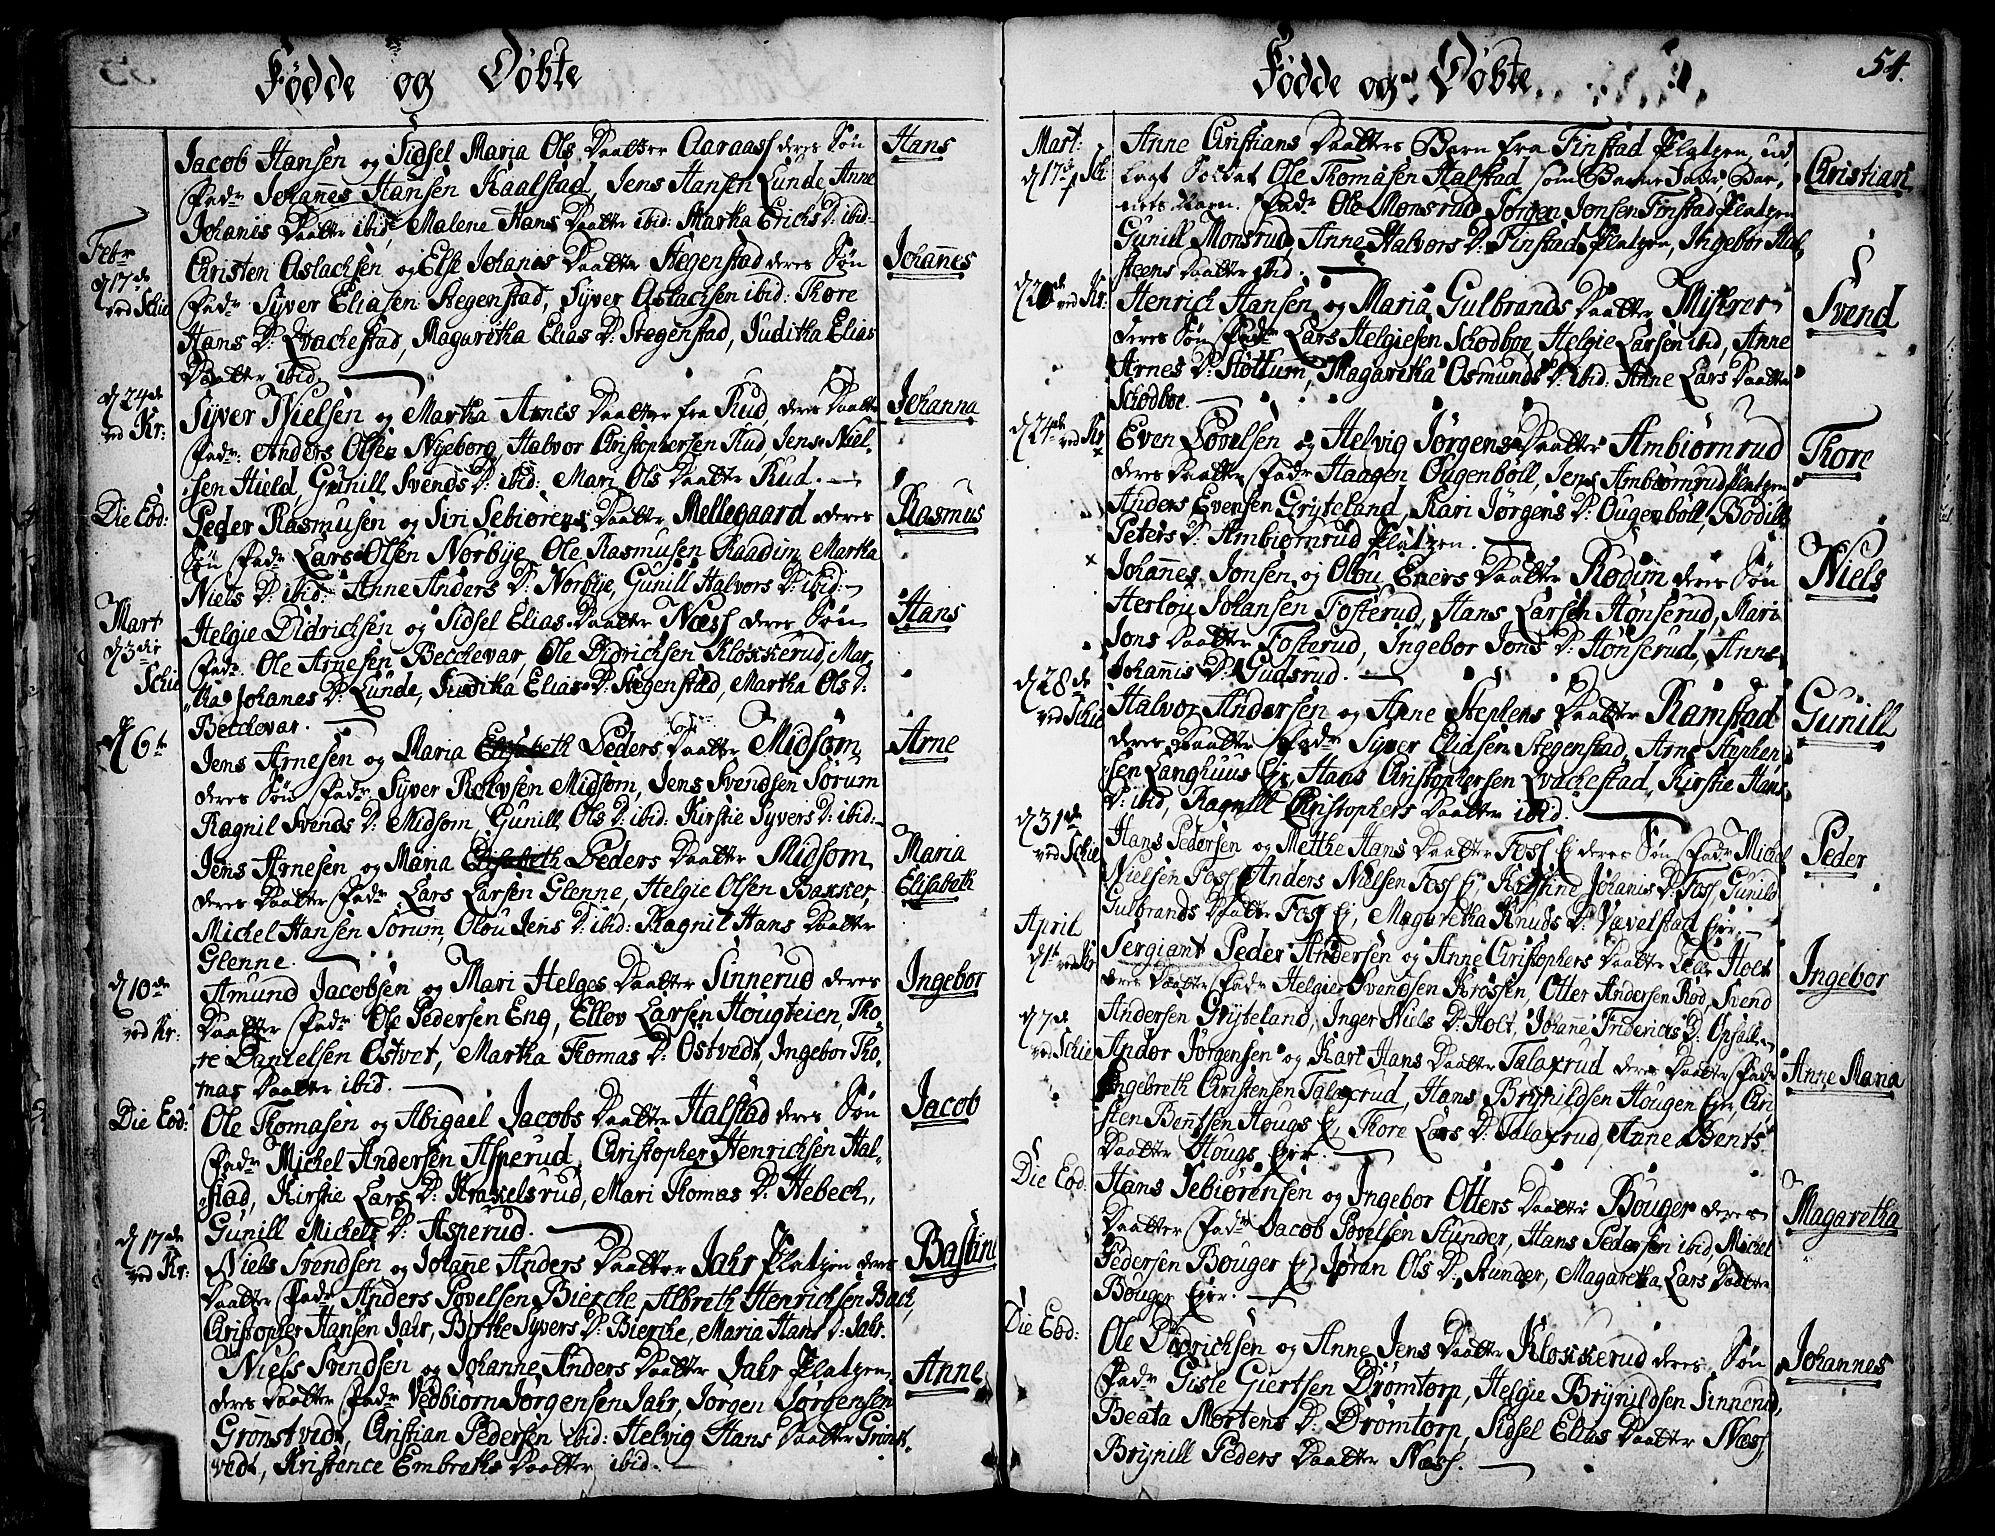 Fødde og Døbte
Jacob Hansen og Sidsel Maria Ols Daatter Aaraass deres Søn
Hans
Fadr Johanes Hansen Kaalstad, Jens Hansen Lunde, Anne
Johanis Daatter ibid, Malene Hans Daatter ibid: Martha Erichs D: ibid
Febr
d 17de
ved Schie
Christen Aslachsen og Else Johanis Daatter Stegenstad deres Søn
Johannes
Fadr Syver Eliasen Stegenstad, Syver Aslachsen ibid: Thore
Hans D: Qvachestad, Magaretha Elias D: Stegenstad, Juditha Elias
Daatter ibid.
d 24de
ved Kr:
Syver Nielsen og Martha Arnes Daatter fra Rud, deres Daatter
Johanna
Fadr: Anders Olsen Nyeborg, Halvor Christophersen Rud, Jens Niel-
sen Hield, Gunill Svends D: ibid: Mari Ols Daatter Rud.
Die Eod:
Peder Rasmusen og Siri Sebiørens Daatter Mellegaard deres
Rasmus
Søn Fadr Lars Olsen Norbye, Ole Rasmusen Raadim, Martha
Niels D: ibid: Anne Anders D: Norbye, Gunill Halvors D: ibid:
Mart
d 3die
Schie
Helgie Didrichsen og Sidsel Elias Daatter Næss deres Søn
Hans
Fadr. Ole Arnesen Becchevar, Ole Didrichsen Kloxxerud, Mar-
tha Johanes D: Lunde, Juditha Elias D: Stegenstad, Martha Ols D:
Becchevar.
d 6te
Jens Arnesen og Maria Elisabeth Peders Daatter Midsom
Arne
deres Søn Fadr Syver Rolvsen Midsom, Jens Svendsen Sorum
Ragnil Svends D: Midsom, Gunill Ols D: ibid: Kirstie Syvers D: ibid:
Jens Arnesen og Maria Elisabeth Peders Daatter Midsom
Maria
Elisabeth
deres Daatter Fadr Lars Larsen Glenne, Helgie Olsen Baxxer,
Michel Hansen Sorum, Olou Jens D: ibid: Ragnil Hans Daatter
Glenne.
d 10de
ved Kr:
Amund Jacobsen og Mari Helges Daatter Sinnerud deres
Ingebor
Daatter Fadr Ole Pedersen Eng, Ellev Larsen Hougteien, Tho-
re Danielsen Ostvet, Martha Thomas D: Ostvedt, Ingebor Tho-
mas Daatter ibid.
Die Eod:
Ole Thomasen og Abigael Jacobs Daatter Halstad deres Søn
Jacob
Fadr Michel Andersen Asperud, Christopher Henrichsen Hal-
stad, Kirstie Lars D: Kraxelsrud, Mari Thomas D: Hebech,
Gunill Michels D: Asperud.
d 17de
ved Kr:
Niels Svendsen og Johanne Anders Daatter Jahr Platzen deres
Bastine
Daatter Fadr Anders Povelsen Bierche, Albreth Henrichsen Bach,
Christopher Hansen Jahr, Birthe Syvers D: Bierche, Maria Hans D: Jahr.
Niels Svendsen og Johanne Anders Daatter Jahr Platzen
Anne
deres Daatter Fadr Vedbiorn Jørgensen Jahr, Jørgen Jørgensen
Grønstvedt, Christian Pedersen ibid: Helvig Hans Daatter Grønst-
vedt, Kristence Embreths Daatter ibid.
Fødde og Døbte
54.
Mart:
d 17de Sch:
Anne Christians Daatters Barn fra Finstad Platzen, ud
Christian
lagt Soldat Ole Thomasen Halstad som Barne Fadr
nets Navn. Fadr Ole Monsrud, Jørgen Jonsen Finstad Platzen
Gunill Monsrud, Anne Halvors D: Finstad Platzen, Ingebor Hal-
steens Daatter ibid.
ved Kr:
Henrich Hansen og Maria Gulbrands Daatter Myhrer
Svend
deres Søn Fadr Lars Helgiesen Schodboe, Helgie Larsen ibid, Anne
Arnes D: Støttum, Magaretha Osmunds D: ibid: Anne Lars Daatter
Schodboe.
d 24de
ved Kr
Even Povelsen og Helvig Jørgens Daatter Ambiørnrud
Thore
deres Daatter Fadr Haagen Ougenboll, Jens Ambiørnrud Platzen
Anders Evensen Gryteland, Kari Jørgens D: Ougenboll, Bodill
Peters D: Ambiørnrud Platzen.
Johannes Jonsen og Olou Eners Daatter Rodim deres Søn
Niels
Herlou Johansen Fosterud, Hans Larsen Hønserud, Mari
Jons Daatter Fosterud, Ingebor Jons D: Hønserud, Anne
Johannis D: Gudsrud.
d 28de
ved Schie
Halvor Andersen og Anne Stephens Daatter Ramstad
Gunill
deres Daatter Fadr Syver Eliasen Stegenstad, Arne Stephen-
sen Langhuus Ejr, Hans Christophersen Qvachestad, Kirstie Hans
D: ibid, Ragnill Christophers Daatter ibid.
d 31de
ved Schie
Hans Pedersen og Mette Hans Daatter Foss Ej deres Søn Fadr Michel
Peder
Nielsen Foss, Anders Nielsen Foss Ej, Kirstine Johanis D: Foss, Gunild
Gulbrands Daatter Foss Ej, Magaretha Knuds D: Vævelstad Ejer.
April
d 1te ved Kr
Sergiant Peder Andersen og Anne Christophers Daatter Holt
Ingebor
deres Daatter Fadr Helgie Svendsen Krossen, Otter Andersen Rod, Svend
Andersen Gryteland, Inger Niels D: Holt, Johanne Friderichs D: Opsall.
d 7de
ved Schie
Andor Jorgensen og Kari Hans Daatter Talaxrud deres Daatter Fadr
Anne Maria
Engebreth Christensen Talaxrud, Hans Brynildsen Hougen Ejer, Chri-
sten Bentsen Hougs Ej, Thore Lars D: Talaxrud, Anne Bents
Daatter Hougs Ejer.
Die Eod:
Hans Sebiørensen og Ingebor Otters Daatter Bouger deres
Magaretha
Daatter Fadr Jacob Povelsen Stunder, Hans Pedersen ibid Michel
Pedersen Bouger Ej Joran Ols D: Stunder, Magaretha Lars Daatter
Bouger Ejer.
Die Eod:
Ole Didrichsen og Anne Jens Daatter Kloxxerud deres Søn
Johannes
Fadr Gisle Giertsen Drømtorp, Helgie Brynildsen Sinnerud,
Beata Mortens D: Drømtorp, Sidsel Elias Daatter Næss,
Brynill Peders Daatter Næss.